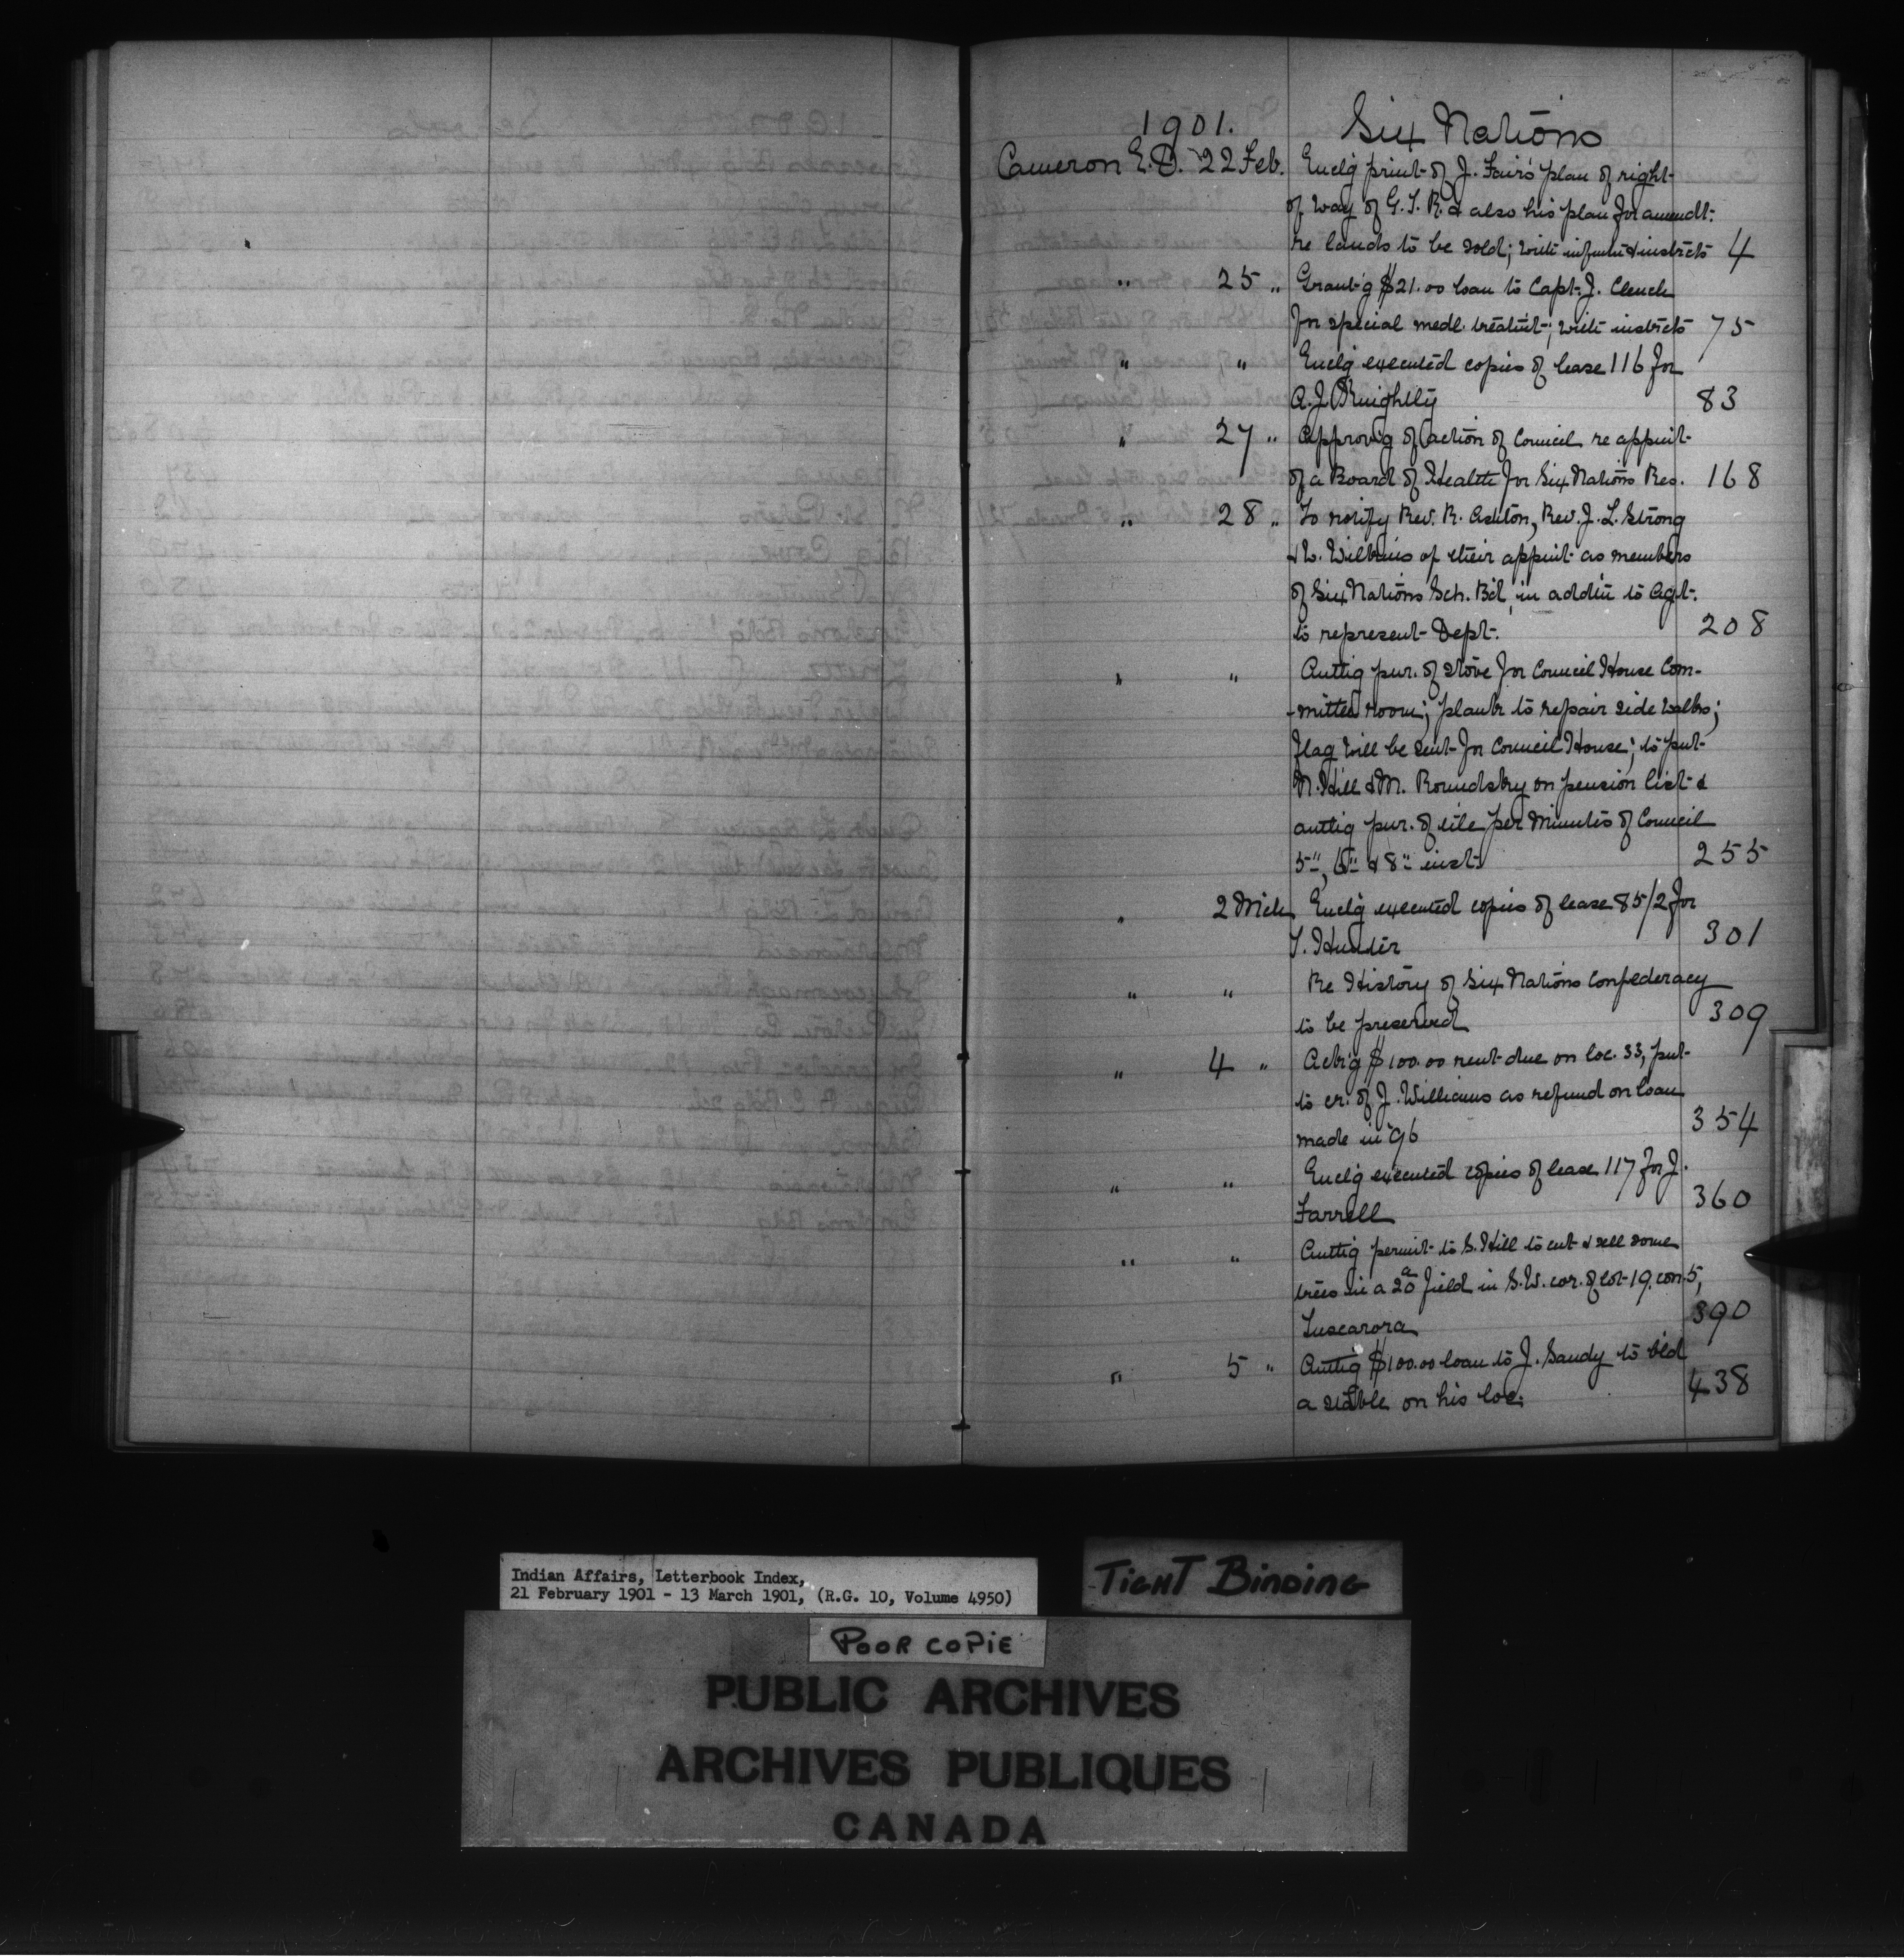 1901. Six Nations
Cameron E.D. 22 Feb. Enclg print of J. Fair's plan of right
of way of G.T.R. & also his plan for amendt.
re lands to be sold; with infmtn & instrcts 4
" 25 " Grant'g $21.00 loan to Capt. J. Clench
for special medl. treatmt; with instrcts 75
" " Enclg executed copies of lease 116 for
A.J. Knightly 83
" 27 " Approvig of action of Council re appmt
of a Board of Health for Six Nations Res. 168
" 28 " To notify Rev. R. Ashton, Rev. J. L. Strong
& W. Wilkins of their appmt as members
of Six Nations Sch. B'd, in addtn to Agt.
to represent Dept. 208
" " Authg pur. of stove for Council House Com-
-mittee room; plank to repair side walks;
flag will be sent for Council House; to put
N. Hill & M. Roundsky on pension list &
authg pur. of tile per Minutes of Council
5", 6" & 8" inst. 255
" 2 Mch Enclg executed copies of lease 85/2 for
T. Hunter 301
" " Re History of Six Nations Confederacy
to be preserved 309
" 4 " Ackg $100.00 rent due on loc. 33, put
to cr. of J. Williams as refund on loan
made in '96 354
" " Enclg executed copies of lease 117 for J.
Farrell 360
" " Authg permit to S. Hill to cut & sell some
trees in a 20a field in S.W. cor. of lot 19. con. 5,
Tuscarora 390
" 5 " Authg $100.00 loan to J. Sandy to bld
a stable on his loc. 438
Indian Affairs, Letterbook Index,
21 February 1901 - 13 March 1901, (R.G. 10, Volume 4950)
TIGHT BINDING
POOR COPIE
PUBLIC ARCHIVES
ARCHIVES PUBLIQUES
CANADA